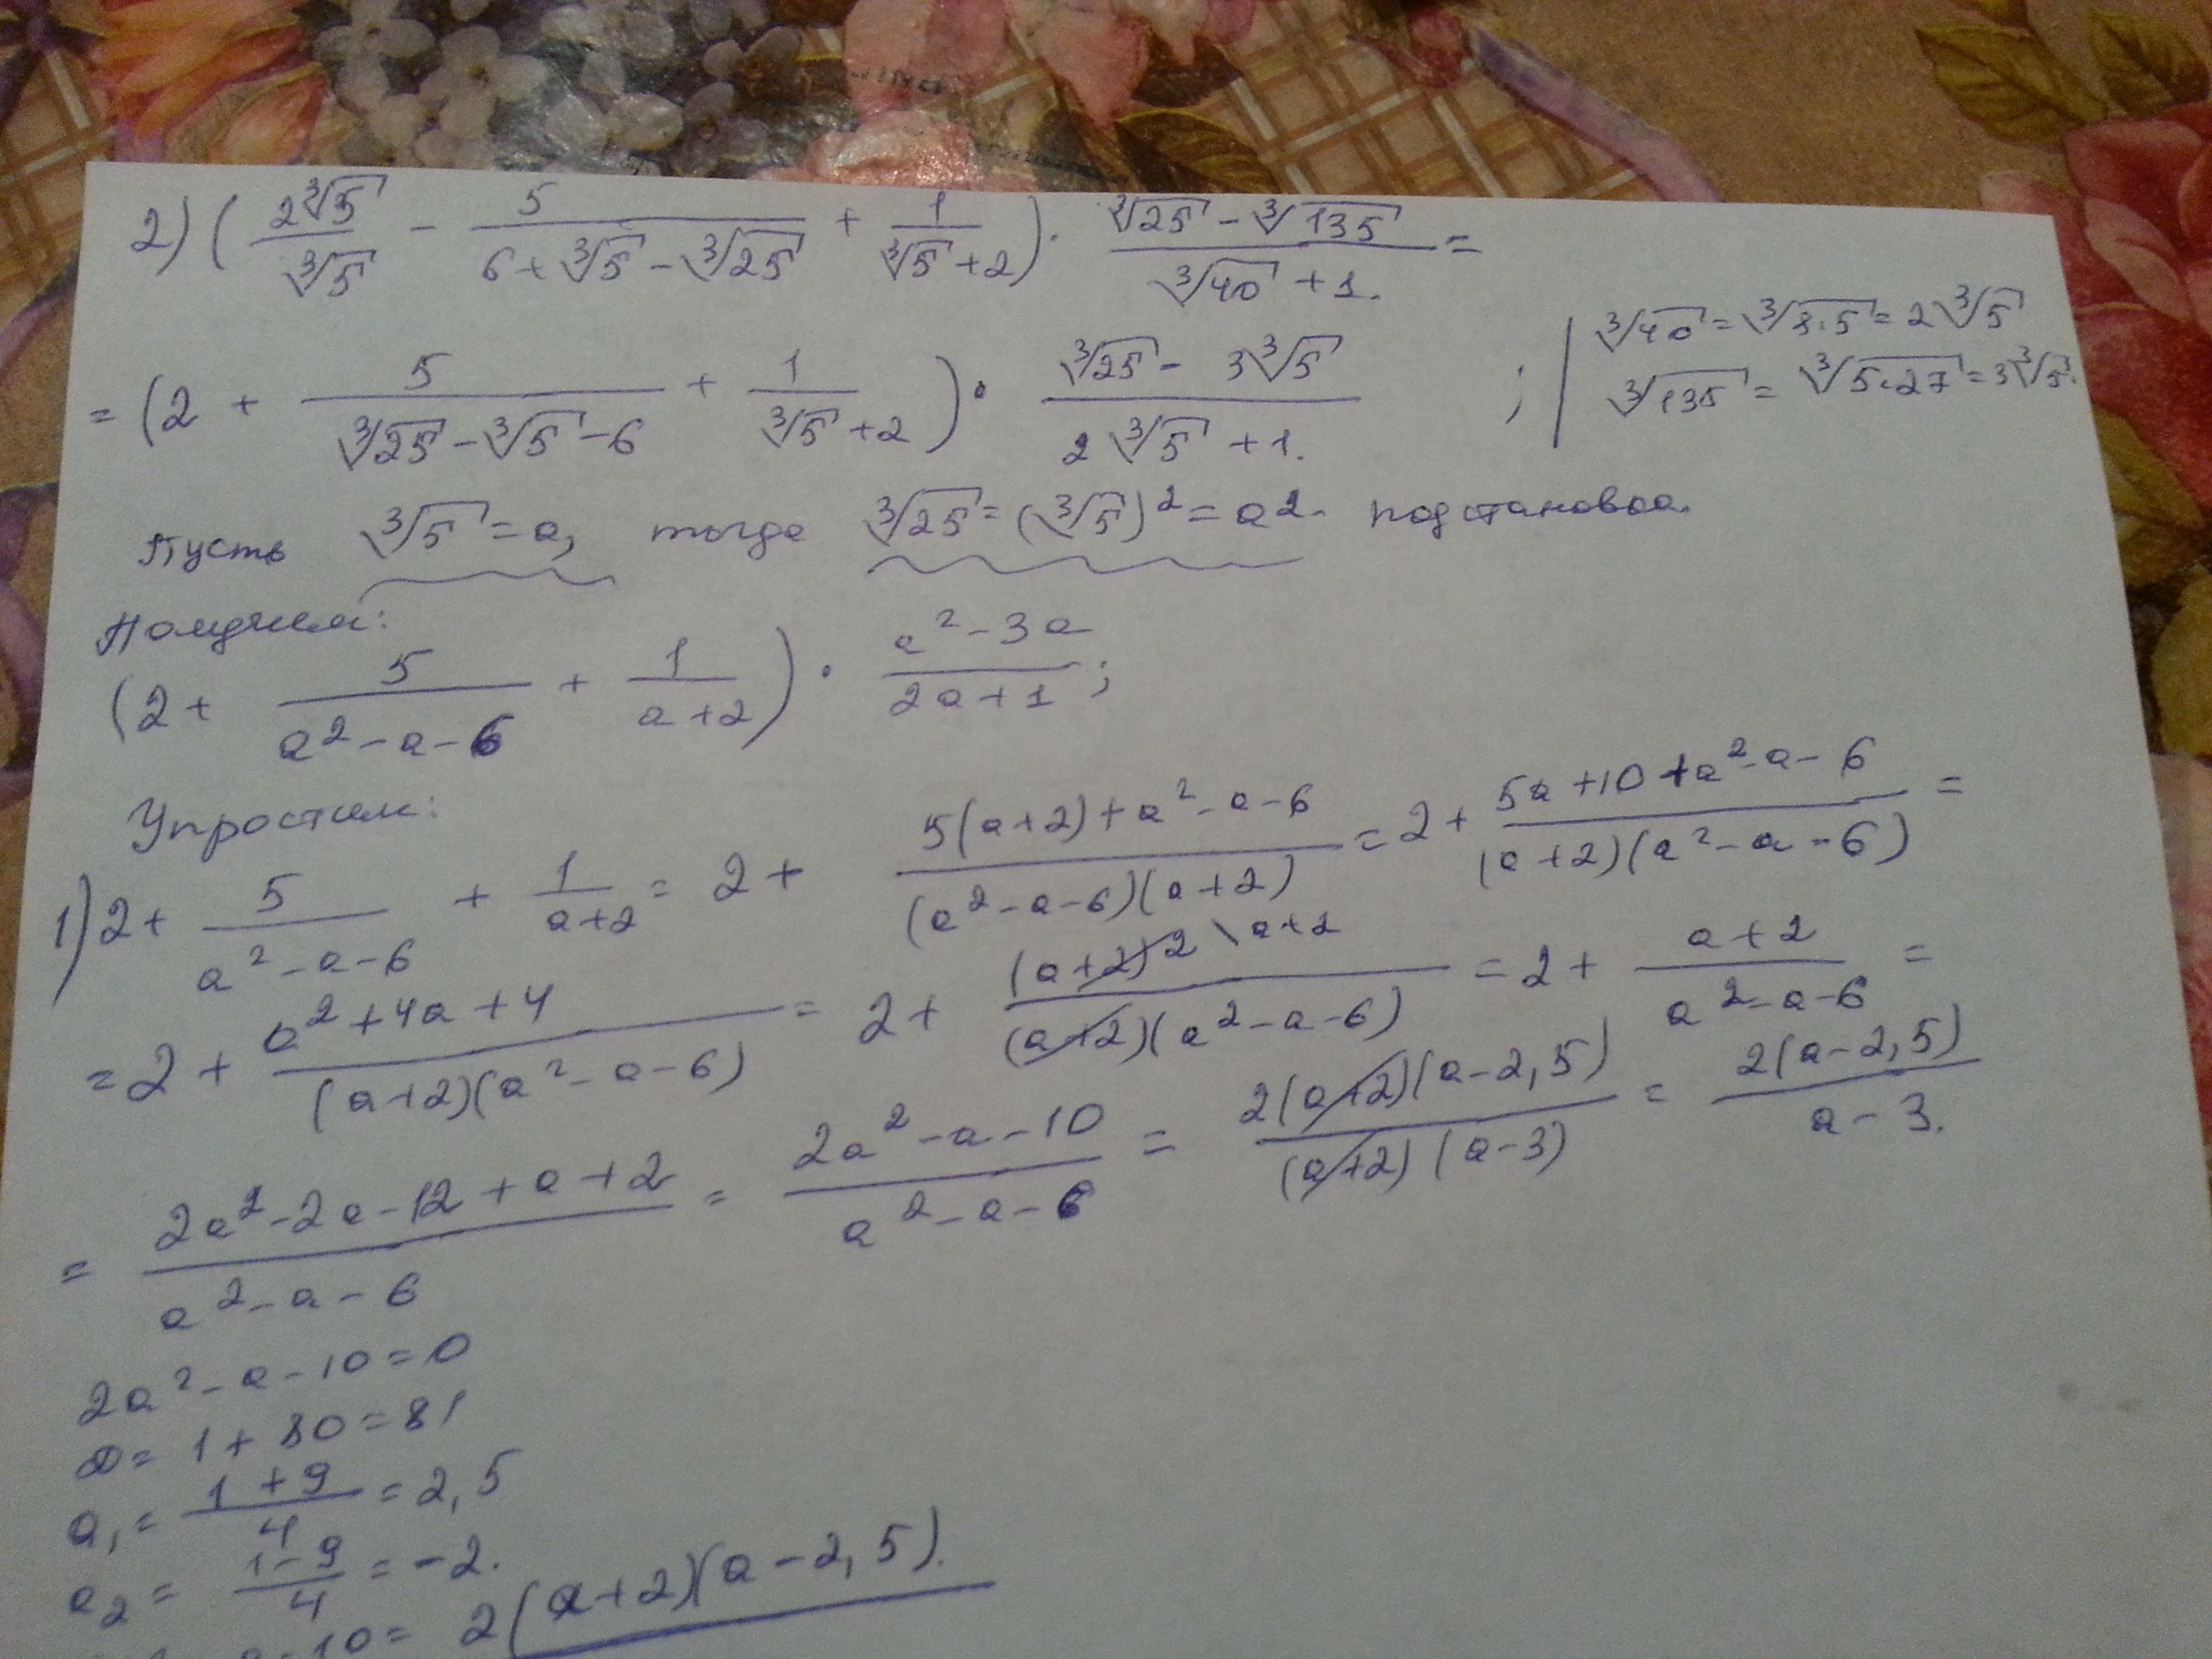 2) (2∛5/∛5 - 5/(6+∛5-∛25) + 1/(∛5+2)) · (∛25-∛135)/(∛40+1.) =
= (2 + 5/(∛25-∛5-6) + 1/(∛5+2)) · (∛25-3∛5)/(2∛5+1.) ;
∛40 = ∛8·5 = 2∛5
∛135 = ∛5·27 = 3∛5.
Пусть ∛5 = a, тогда ∛25 = (∛5)² = a². подстановоа.
Получим:
(2 + 5/(a²-a-6) + 1/(a+2)) · (a²-3a)/(2a+1) ;
Упростим:
1) 2 + 5/(a²-a-6) + 1/(a+2) = 2 + (5(a+2)+a²-a-6)/((a²-a-6)(a+2)) = 2 + (5a+10+a²-a-6)/((a+2)(a²-a-6)) =
= 2 + (a²+4a+4)/((a+2)(a²-a-6)) = 2 + (a+2)² \ a+2/((a+2)(a²-a-6)) = 2 + (a+2)/(a²-a-6) =
= (2a²-2a-12+a+2)/(a²-a-6) = (2a²-a-10)/(a²-a-6) = 2(a+2)(a-2,5)/((a+2)(a-3)) = 2(a-2,5)/(a-3.)
2a²-a-10=0
D= 1+80=81
a₁= (1+9)/4 = 2,5
a₂= (1-9)/4 = -2.
-10= 2(a+2)(a-2,5).